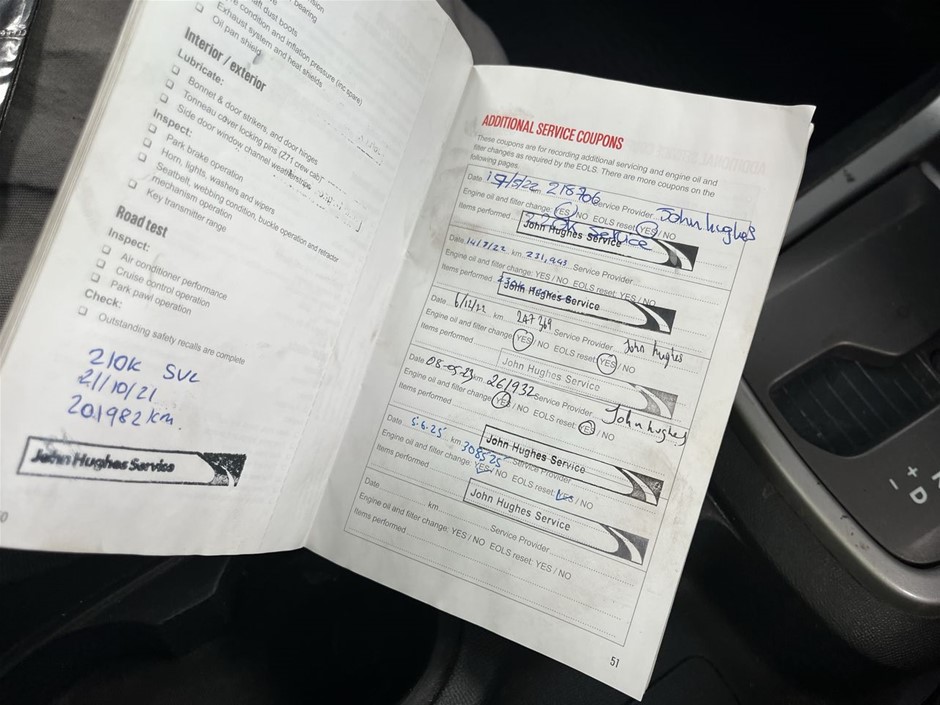 bearing
shaft dust boots
condition and inflation pressure (inc spare)
Exhaust system and heat shields
Oil pan shield
Interior / exterior
Lubricate:
Bonnet & door strikers, and door hinges
Tonneau cover locking pins (Z71 crew cab)
Side door window channel weatherstrips
Inspect:
Park brake operation
Horn, lights, washers and wipers
Seatbelt, webbing condition, buckle operation and retractor
mechanism operation
Key transmitter range
Road test
Inspect:
Air conditioner performance
Cruise control operation
Park pawl operation
Check:
Outstanding safety recalls are complete
210K SVC
21/10/21
201982 km.
John Hughes Service
ADDITIONAL SERVICE COUPONS
These coupons are for recording additional servicing and engine oil and
filter changes as required by the EOLS. There are more coupons on the
following pages.
Date km 218706 Service Provider John hughes
Engine oil and filter change: YES / NO EOLS reset: YES / NO
Items performed service
John Hughes Service
Date 14/7/22 km 231,943 Service Provider
Engine oil and filter change: YES / NO EOLS reset: YES / NO
Items performed
John Hughes Service
Date 6/12/22 km 247369 Service Provider John hughes
Engine oil and filter change: YES / NO EOLS reset: YES / NO
Items performed
John Hughes Service
Date 08-05-23 km 261932 Service Provider John hughes
Engine oil and filter change: YES / NO EOLS reset: YES / NO
Items performed
John Hughes Service
Date 5.6.25 km 308525 Service Provider
Engine oil and filter change: YES / NO EOLS reset: YES / NO
Items performed
John Hughes Service
Date km Service Provider
Engine oil and filter change: YES / NO EOLS reset: YES / NO
Items performed
51
+
- D